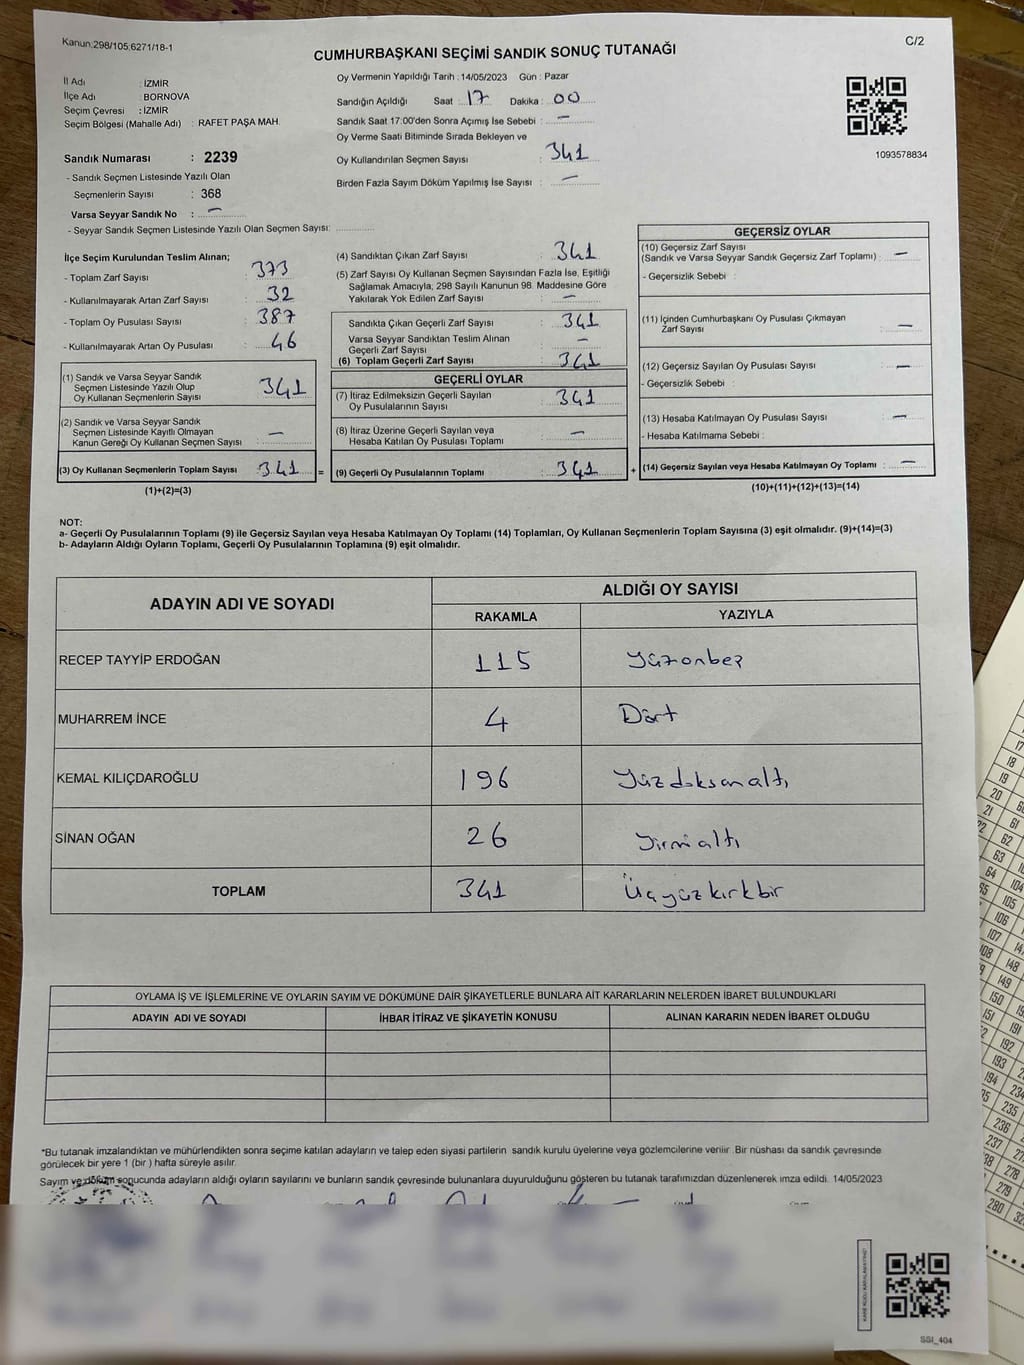 Kanun:298/105;6271/18-1
C/2
CUMHURBAŞKANI SEÇİMİ SANDIK SONUÇ TUTANAĞI
İl Adı : İZMİR
İlçe Adı : BORNOVA
Seçim Çevresi : İZMİR
Seçim Bölgesi (Mahalle Adı) : RAFET PAŞA MAH.
Sandık Numarası : 2239
- Sandık Seçmen Listesinde Yazılı Olan
Seçmenlerin Sayısı : 368
Varsa Seyyar Sandık No : —
- Seyyar Sandık Seçmen Listesinde Yazılı Olan Seçmen Sayısı:
Oy Vermenin Yapıldığı Tarih : 14/05/2023 Gün : Pazar
Sandığın Açıldığı Saat : 17 Dakika : 00
Sandık Saat 17:00'den Sonra Açımış İse Sebebi : —
Oy Verme Saati Bitiminde Sırada Bekleyen ve
Oy Kullandırılan Seçmen Sayısı : 341
Birden Fazla Sayım Döküm Yapılmış İse Sayısı : —
1093578834
İlçe Seçim Kurulundan Teslim Alınan;
- Toplam Zarf Sayısı : 373
- Kullanılmayarak Artan Zarf Sayısı : 32
- Toplam Oy Pusulası Sayısı : 387
- Kullanılmayarak Artan Oy Pusulası : 46
(1) Sandık ve Varsa Seyyar Sandık
Seçmen Listesinde Yazılı Olup
Oy Kullanan Seçmenlerin Sayısı : 341
(2) Sandık ve Varsa Seyyar Sandık
Seçmen Listesinde Kayıtlı Olmayan
Kanun Gereği Oy Kullanan Seçmen Sayısı : —
(3) Oy Kullanan Seçmenlerin Toplam Sayısı : 341 =
(1)+(2)=(3)
(4) Sandıktan Çıkan Zarf Sayısı : 341
(5) Zarf Sayısı Oy Kullanan Seçmen Sayısından Fazla İse, Eşitliği
Sağlamak Amacıyla, 298 Sayılı Kanunun 98. Maddesine Göre
Yakılarak Yok Edilen Zarf Sayısı : —
Sandıkta Çıkan Geçerli Zarf Sayısı : 341
Varsa Seyyar Sandıktan Teslim Alınan
Geçerli Zarf Sayısı : —
(6) Toplam Geçerli Zarf Sayısı : 341
GEÇERLİ OYLAR
(7) İtiraz Edilmeksizin Geçerli Sayılan
Oy Pusulalarının Sayısı : 341
(8) İtiraz Üzerine Geçerli Sayılan veya
Hesaba Katılan Oy Pusulası Toplamı : —
(9) Geçerli Oy Pusulalarının Toplamı : 341 +
GEÇERSİZ OYLAR
(10) Geçersiz Zarf Sayısı
(Sandık ve Varsa Seyyar Sandık Geçersiz Zarf Toplamı) : —
- Geçersizlik Sebebi :
(11) İçinden Cumhurbaşkanı Oy Pusulası Çıkmayan
Zarf Sayısı : —
(12) Geçersiz Sayılan Oy Pusulası Sayısı : —
- Geçersizlik Sebebi :
(13) Hesaba Katılmayan Oy Pusulası Sayısı : —
- Hesaba Katılmama Sebebi :
(14) Geçersiz Sayılan veya Hesaba Katılmayan Oy Toplamı : —
(10)+(11)+(12)+(13)=(14)
NOT:
a- Geçerli Oy Pusulalarının Toplamı (9) ile Geçersiz Sayılan veya Hesaba Katılmayan Oy Toplamı (14) Toplamları, Oy Kullanan Seçmenlerin Toplam Sayısına (3) eşit olmalıdır. (9)+(14)=(3)
b- Adayların Aldığı Oyların Toplamı, Geçerli Oy Pusulalarının Toplamına (9) eşit olmalıdır.
ADAYIN ADI VE SOYADI ALDIĞI OY SAYISI
RAKAMLA YAZIYLA
RECEP TAYYİP ERDOĞAN 115 Yüzonbeş
MUHARREM İNCE 4 Dört
KEMAL KILIÇDAROĞLU 196 Yüzdoksanaltı
SİNAN OĞAN 26 Yirmialtı
TOPLAM 341 Üçyüzkırkbir
OYLAMA İŞ VE İŞLEMLERİNE VE OYLARIN SAYIM VE DÖKÜMÜNE DAİR ŞİKAYETLERLE BUNLARA AİT KARARLARIN NELERDEN İBARET BULUNDUKLARI
ADAYIN ADI VE SOYADI İHBAR İTİRAZ VE ŞİKAYETİN KONUSU ALINAN KARARIN NEDEN İBARET OLDUĞU
*Bu tutanak imzalandıktan ve mühürlendikten sonra seçime katılan adayların ve talep eden siyasi partilerin sandık kurulu üyelerine veya gözlemcilerine verilir. Bir nüshası da sandık çevresinde
görülecek bir yere 1 (bir ) hafta süreyle asılır.
Sayım ve döküm sonucunda adayların aldığı oyların sayılarını ve bunların sandık çevresinde bulunanlara duyurulduğunu gösteren bu tutanak tarafımızdan düzenlenerek imza edildi. 14/05/2023
SSI_404